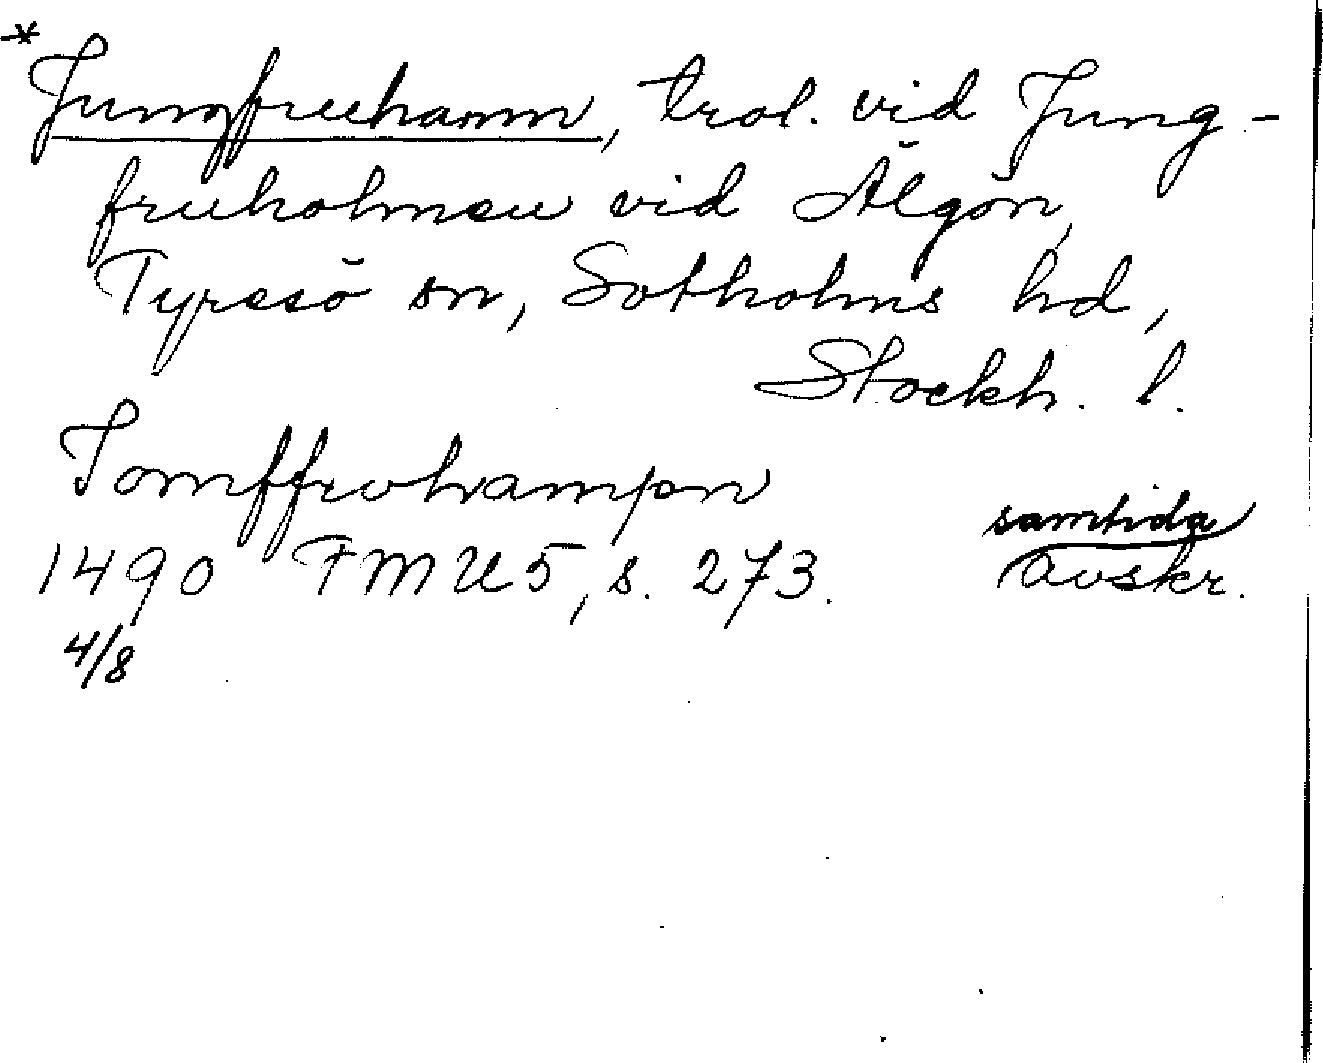 *
Jungfruhamn, trol. vid Jung-
fruholmen vid Älgön,
Tyresö sn, Sotholms hd,
Stockh. l.
Jomffrwhampn
samtida
1490 FMU 5, s. 273. avskr.
4/8